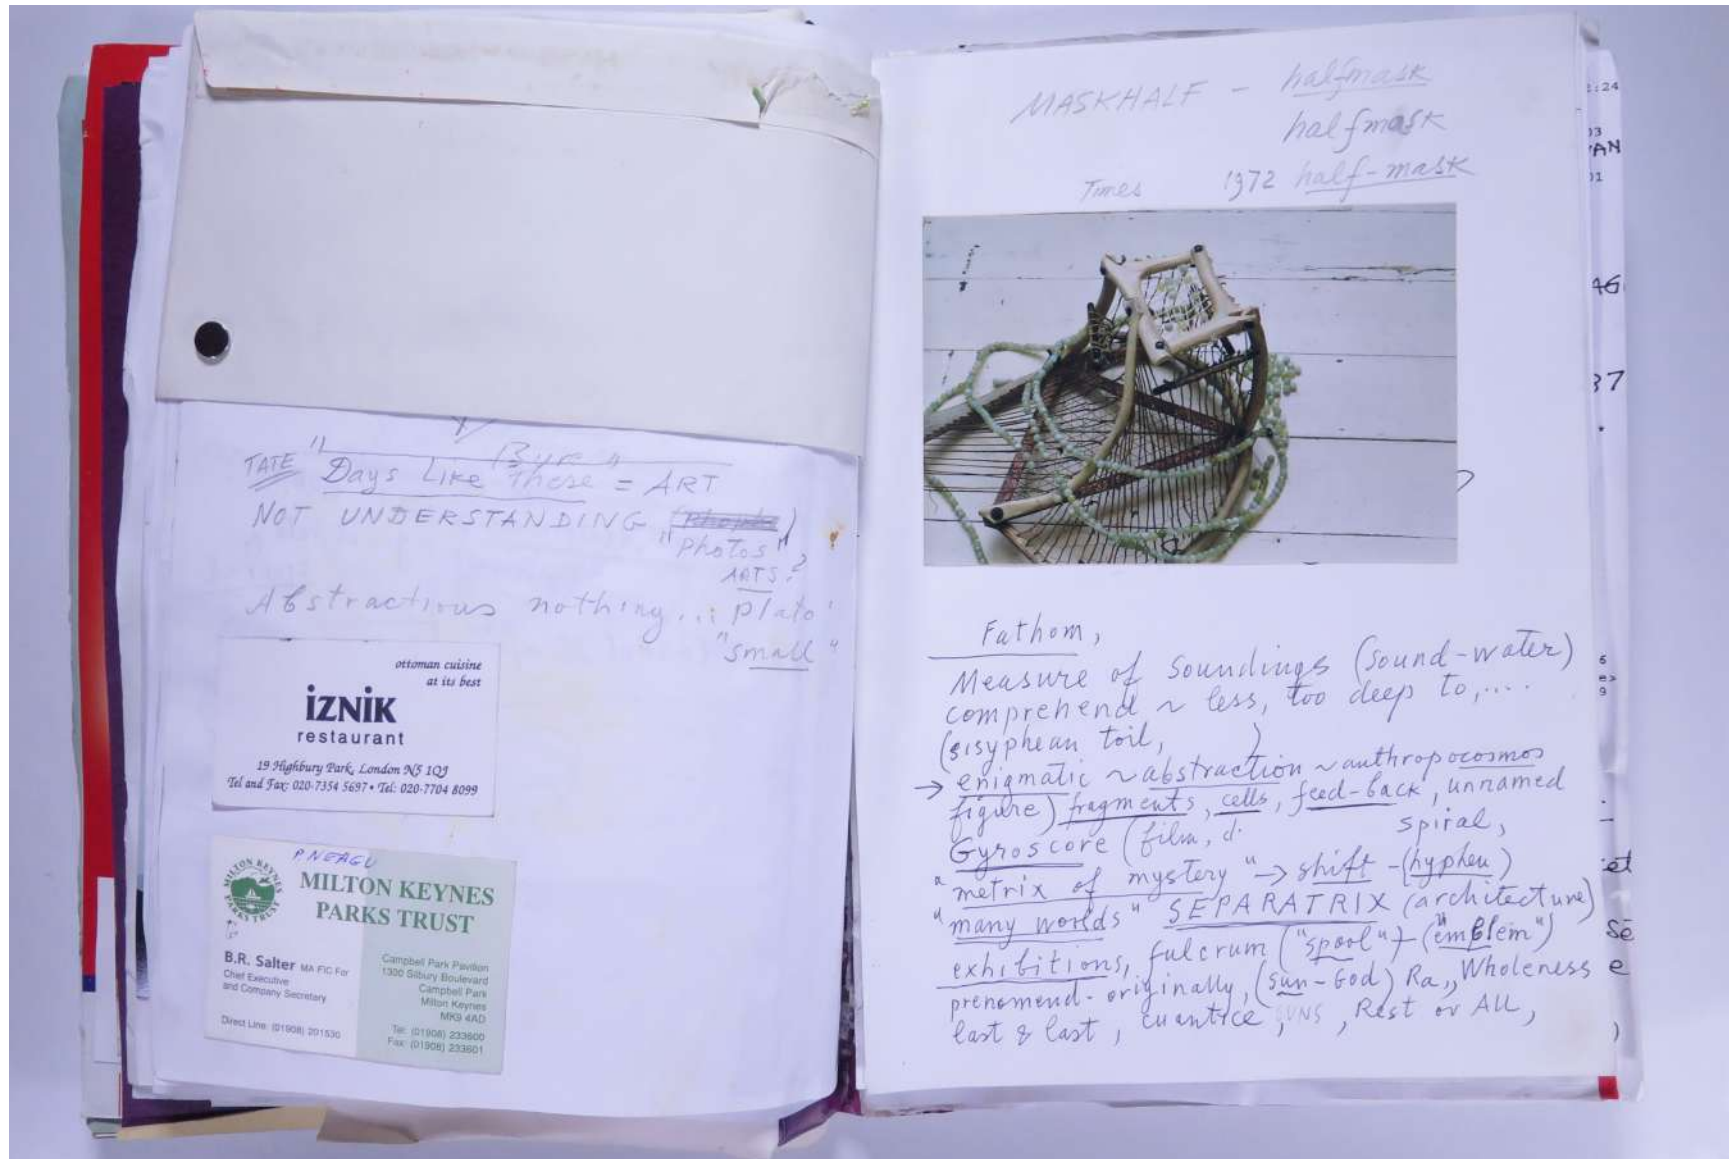 TATE "
Days Like These = ART
NOT UNDERSTANDING
"Photos"
ARTS?
Abstractions nothing... Plato
"small"
ottoman cuisine
at its best
iZNiK
restaurant
19 Highbury Park, London N5 1QJ
Tel and Fax: 020-7354 5697 • Tel: 020-7704 8099
P. NEAGU
MILTON KEYNES PARKS TRUST
MILTON KEYNES
PARKS TRUST
B.R. Salter MA FIC For
Chief Executive
and Company Secretary
Direct Line: (01908) 201530
Campbell Park Pavilion
1300 Silbury Boulevard
Campbell Park
Milton Keynes
MK9 4AD
Tel: (01908) 233600
Fax: (01908) 233601
MASKHALF - halfmask
halfmask
Times 1972 half-mask
Fathom,
Measure of soundings (sound-water)
comprehend ~ less, too deep to,....
(sisyphean toil, )
→ enigmatic ~ abstraction ~ anthropocosmos
figure) fragments, cells, feed-back, unnamed
Gyroscore (film, d. spiral,
"metrix of mystery" → shift - (hyphen)
"many worlds" SEPARATRIX (architecture)
exhibitions, fulcrum ("spool") - ("emblem")
prenomend - originally, (sun-God) Ra,, Wholeness
last & last, cuantice, Rest or ALL,
:24
03
AN
01
AG
37
et
sē
e